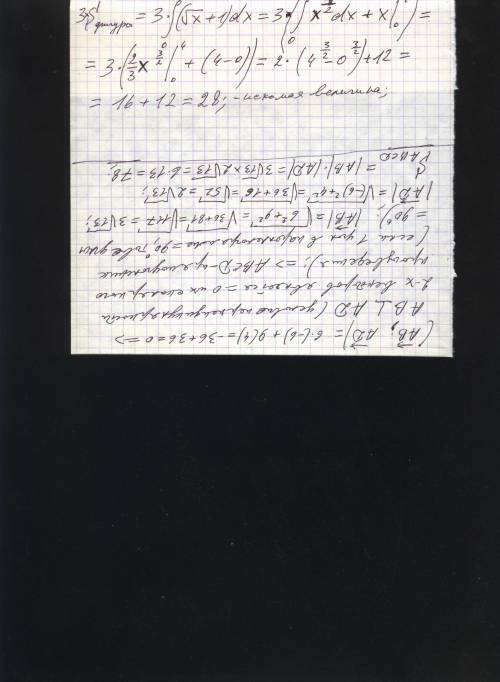 3S фигуры = 3·∫₀⁴(√x+1)dx = 3·(∫₀⁴ x^{1/2}dx + x|₀⁴) =
= 3·(2/3 x^{3/2}|₀⁴ + (4-0)) = 2·(4^{3/2} - 0^{3/2}) + 12 =
= 16 + 12 = 28; - искомая величина;
(AB, AD) = 6·(-6) + 9(4) = -36+36 = 0 =>
AB ⊥ AD (условие перпендикулярности
2-х векторов является = 0 их скалярного
произведения); => ABCD - прямоугольник
(если 1 угол в параллелограмме = 90°, то все углы
= 90°); |AB| = √(6²+9²) = √(36+81) = √117 = 3√13;
|AD| = √((-6)²+4²) = √(36+16) = √52 = 2√13;
S ABCD = |AB|·|AD| = 3√13 × 2√13 = 6·13 = 78;